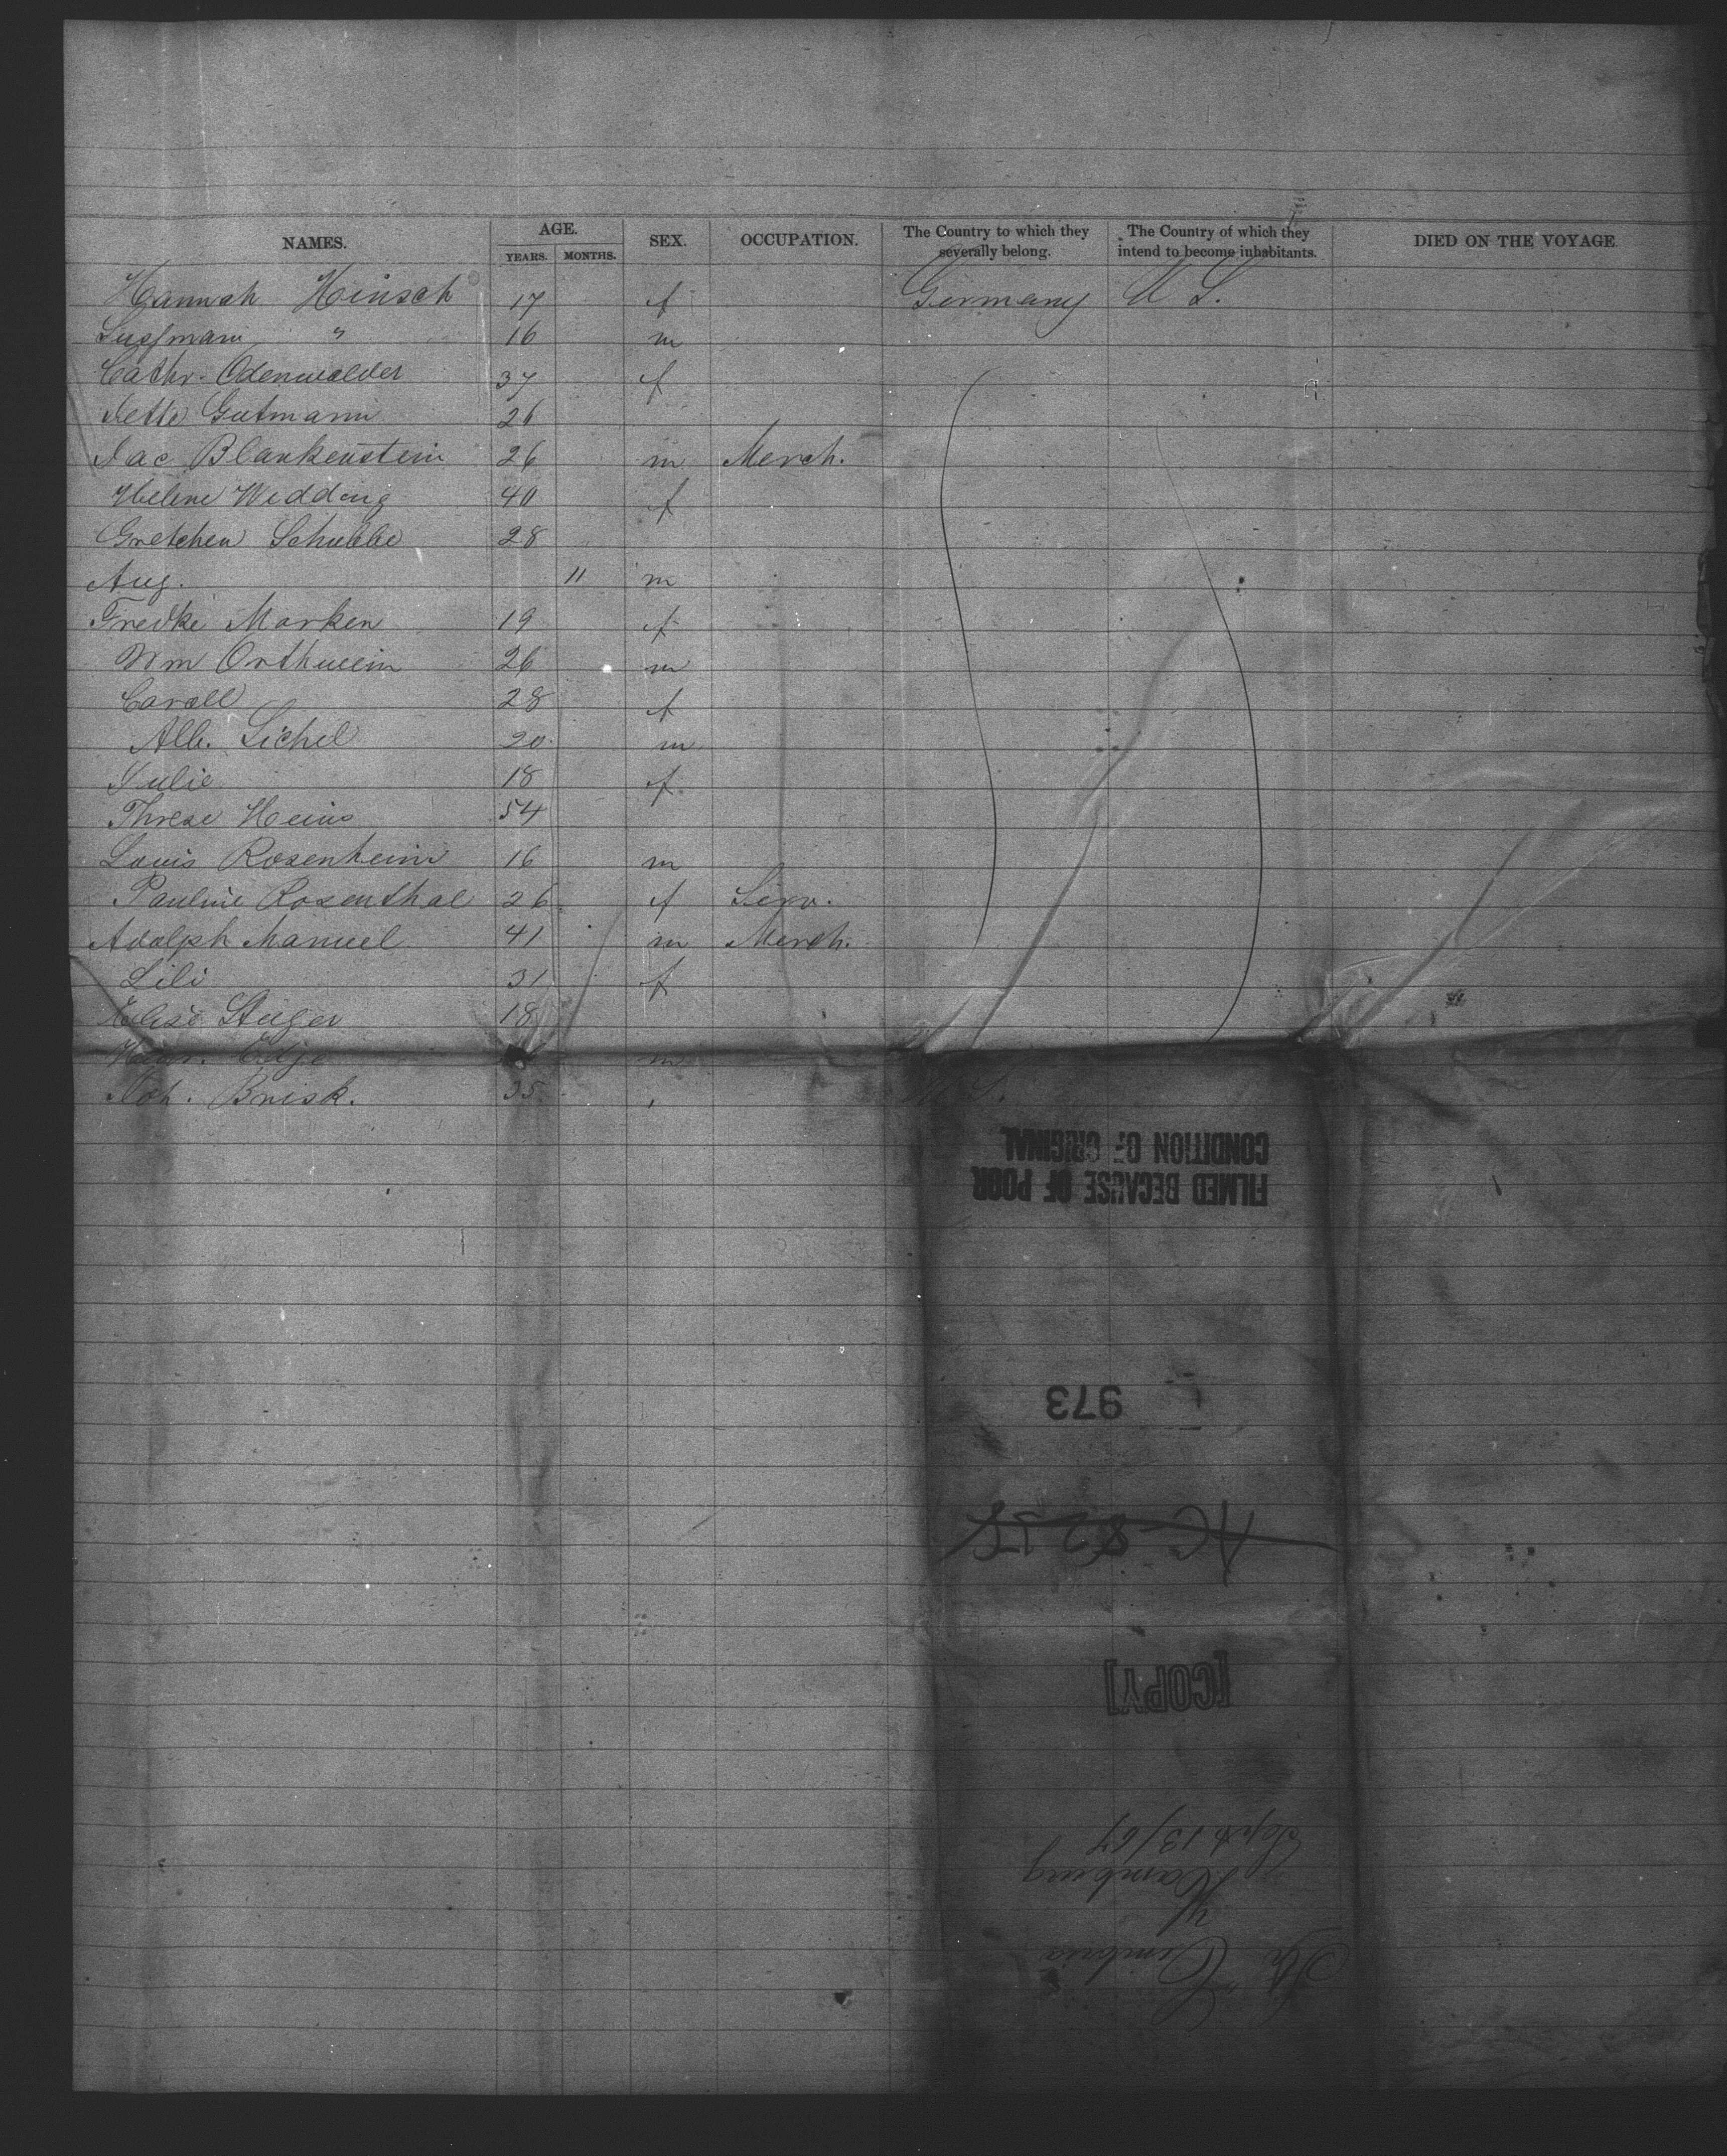 NAMES. AGE. SEX. OCCUPATION. The Country to which they severally belong. The Country of which they intend to become inhabitants. DIED ON THE VOYAGE.
YEARS. MONTHS.
Hannah Heinsch 17 f Germany U S.
Sussmann " 16 m
Cathr. Odenwalder 37 f
Jette Gutmann 26
Jac Blankenstein 26 m Merch.
Helene Wedding 40 f
Gretchen Schubbe 28
Aug. 11 m
Fredke Marken 19 f
Wm Orthwein 26 m
Caroll 28 f
Alb. Sichel 20 m
Julie 18 f
Threse Heins 54
Louis Rosenheim 16 m
Pauline Rosenthal 26 f Serv.
Adolph Manuel 41 m Merch.
Lili 31 f
Elise Steiger 18
m
Joh. Brisk. 35 U. S.
FILMED BECAUSE OF POOR
CONDITION OF ORIGINAL
973
[COPY]
Cimbria
Hamburg
Sept 13/67